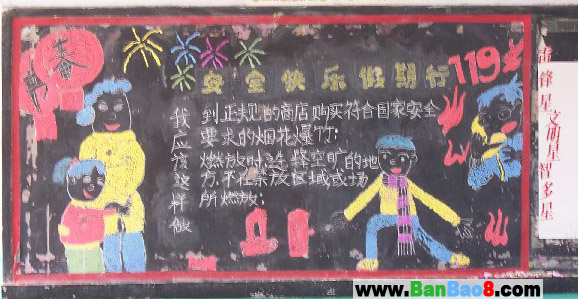 春节
安全快乐假期行
119
我应该这样做
到正规的商店购买符合国家安全
要求的烟花爆竹;
燃放时,选择空旷的地
方,不在禁放区域或场
所燃放;
雷锋星 文明星 智多星
www.BanBao8.com